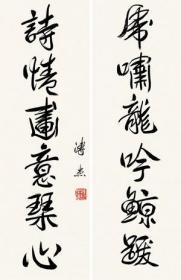 虎嘯龍吟鯨躍
詩情畫意琴心
溥杰